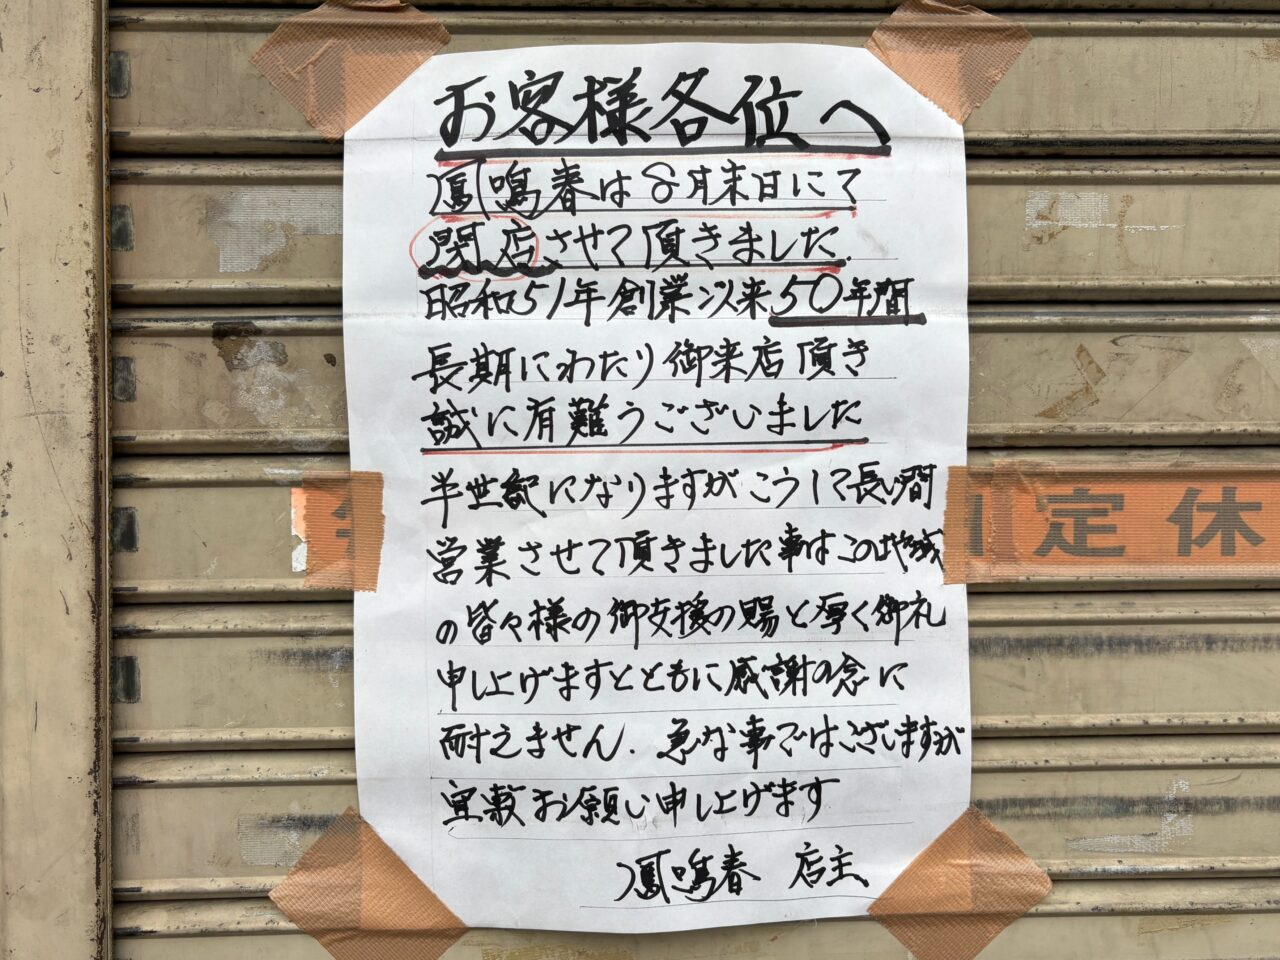 お客様各位へ
鳳鳴春は8月末日にて
閉店させて頂きました.
昭和51年創業以来50年間
長期にわたり御来店頂き
誠に有難うございました
半世紀になりますがこうして長い間
営業させて頂きました事はこの地域
の皆々様の御支援の賜と厚く御礼
申し上げますとともに感謝の念に
耐えません. 急な事ではございますが
宜敷お願い申し上げます
鳳鳴春 店主
定休